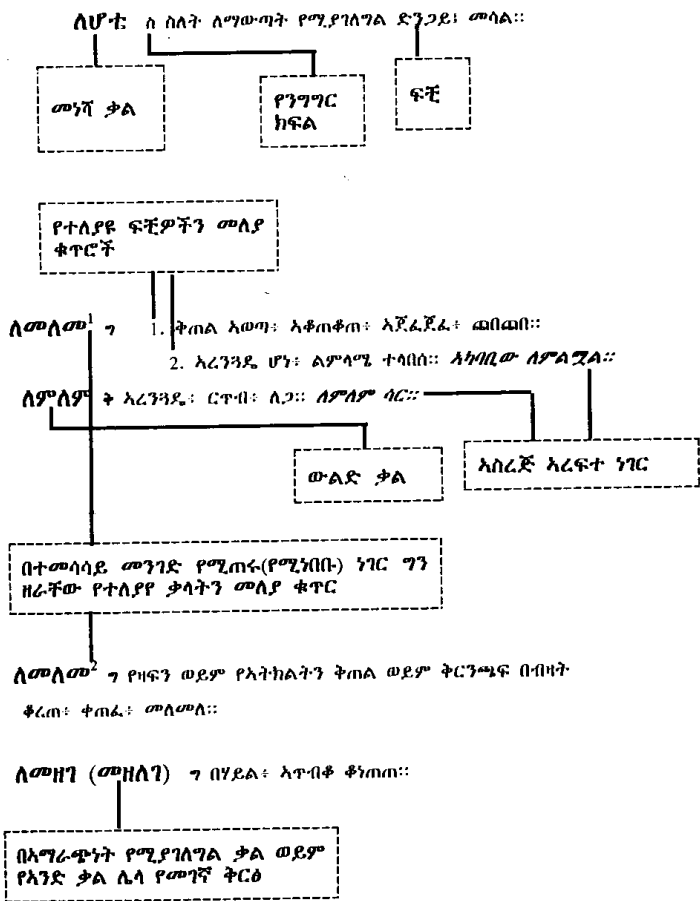 ለሆቴ ስ ስለት ለማውጣት የሚያገለግል ድንጋይ፤ መሳል፡፡
መነሻ ቃል
የንግግር
ክፍል
ፍቺ
የተለያዩ ፍቺዎችን መለያ
ቁጥሮች
ለመለመ¹ ግ 1. ቅጠል ኣወጣ፥ ኣቆጠቆጠ፥ ኣጀፈጀፈ፥ ጨበጨበ፡፡
2. ኣረንጓዴ ሆነ፥ ልምላሜ ተላበሰ፡፡ ኣካባቢው ለምልሟል፡፡
ለምለም ቅ ኣረንጓዴ፥ ርጥብ፥ ለጋ፡፡ ለምለም ሳር፡፡
ውልድ ቃል
ኣስረጅ ኣረፍተ ነገር
በተመሳሳይ መንገድ የሚጠሩ(የሚነበቡ) ነገር ግን
ዘራቸው የተለያየ ቃላትን መለያ ቁጥር
ለመለመ² ግ የዛፍን ወይም የኣትክልትን ቅጠል ወይም ቅርንጫፍ በብዛት
ቆረጠ፥ ቀጠፈ፥ መለመለ፡፡
ለመዘገ (መዘለገ) ግ በሃይል፥ ኣጥብቆ ቆነጠጠ፡፡
በኣማራጭነት የሚያገለግል ቃል ወይም
የኣንድ ቃል ሌላ የመገኛ ቅርፅ